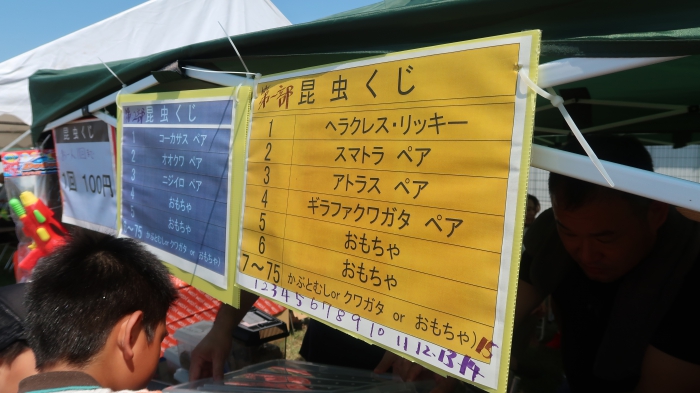 昆虫くじ
1回 100円
第二部 昆虫くじ
1 コーカサス ペア
2 オオクワ ペア
3 ニジイロ ペア
4 おもちゃ
5 おもちゃ
6~75 かぶとむし or クワガタ or おもちゃ
第一部 昆虫くじ
1 ヘラクレス・リッキー
2 スマトラ ペア
3 アトラス ペア
4 ギラファクワガタ ペア
5 おもちゃ
6 おもちゃ
7~75 かぶとむし or クワガタ or おもちゃ)
1 2 3 4 5 6 7 8 9 10 11 12 13 14 15